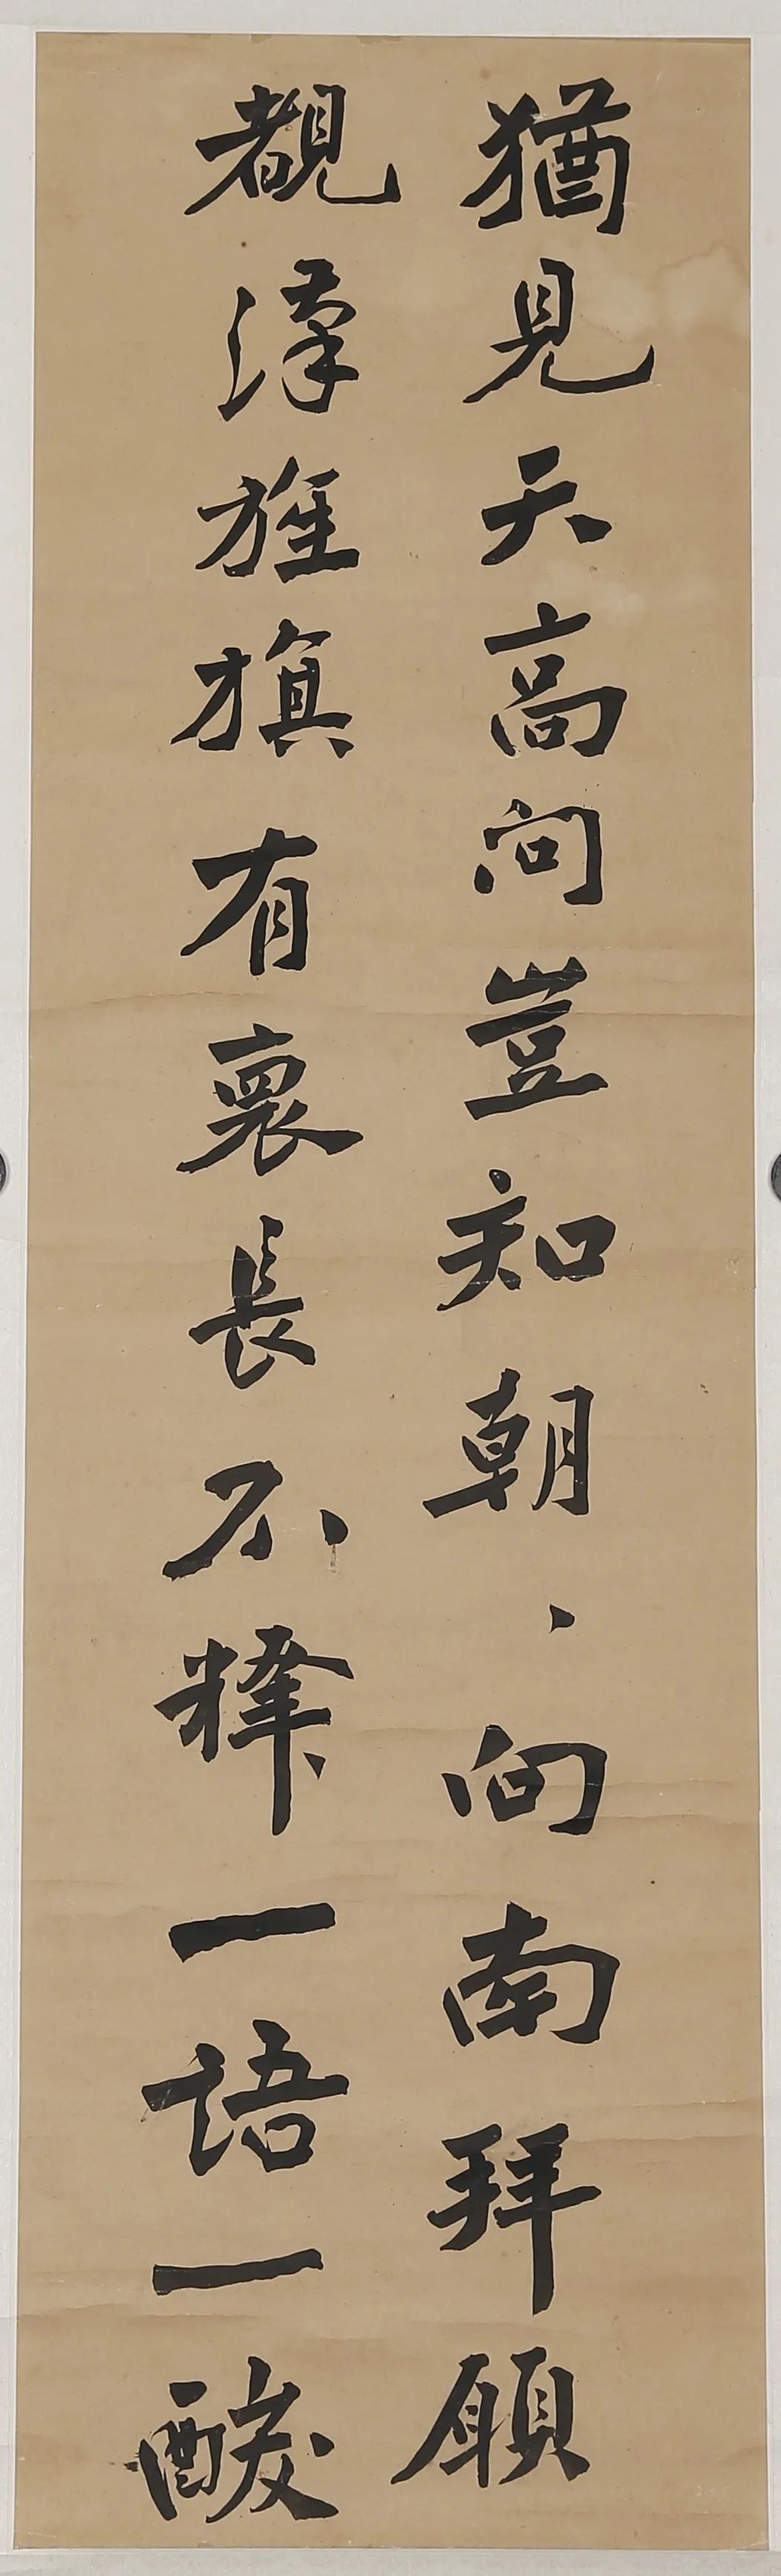 猶見天高問豈知朝、向南拜願
覩漢旌旗有褱長不釋一語一酸